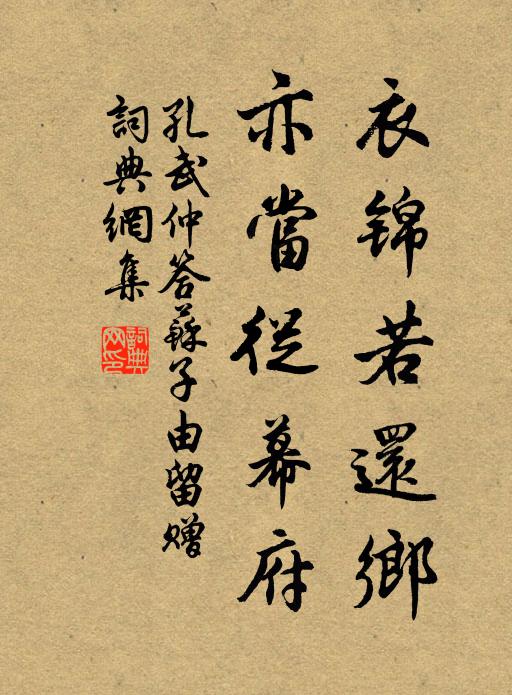 衣錦若還鄉
亦當從幕府
孔武仲答蘇子由留贈
詞典網集
詞典
网印